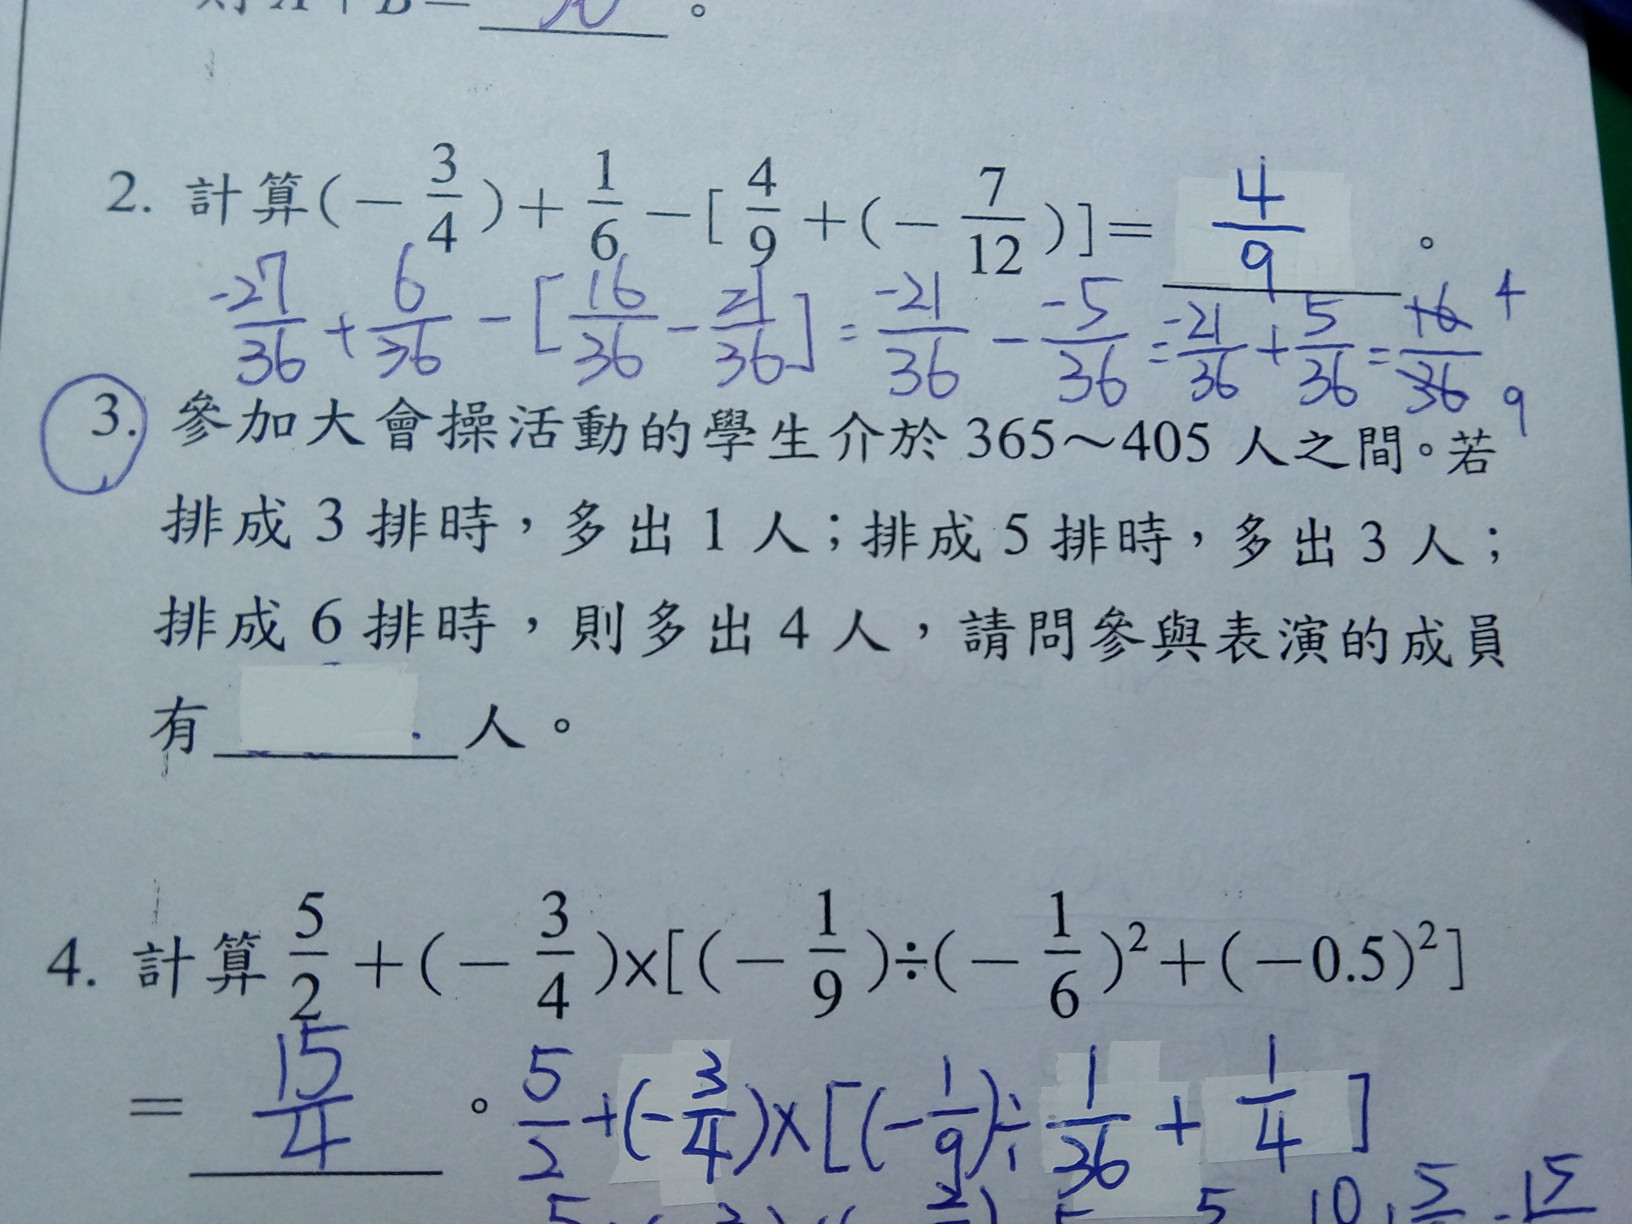 則 A + B = 。
2. 計算(−3/4)+1/6−[4/9+(−7/12)]= 4/9 。
-27/36 + 6/36 − [16/36 − 21/36] = -21/36 − -5/36 = -21/36 + 5/36 = 16/36 4/9
3. 參加大會操活動的學生介於 365～405 人之間。若
排成 3 排時，多出 1 人；排成 5 排時，多出 3 人；
排成 6 排時，則多出 4 人，請問參與表演的成員
有 人。
4. 計算 5/2+(−3/4)×[(−1/9)÷(−1/6)²+(−0.5)²]
= 15/4 。 5/2+(-3/4)×[(-1/9)÷1/36+1/4]